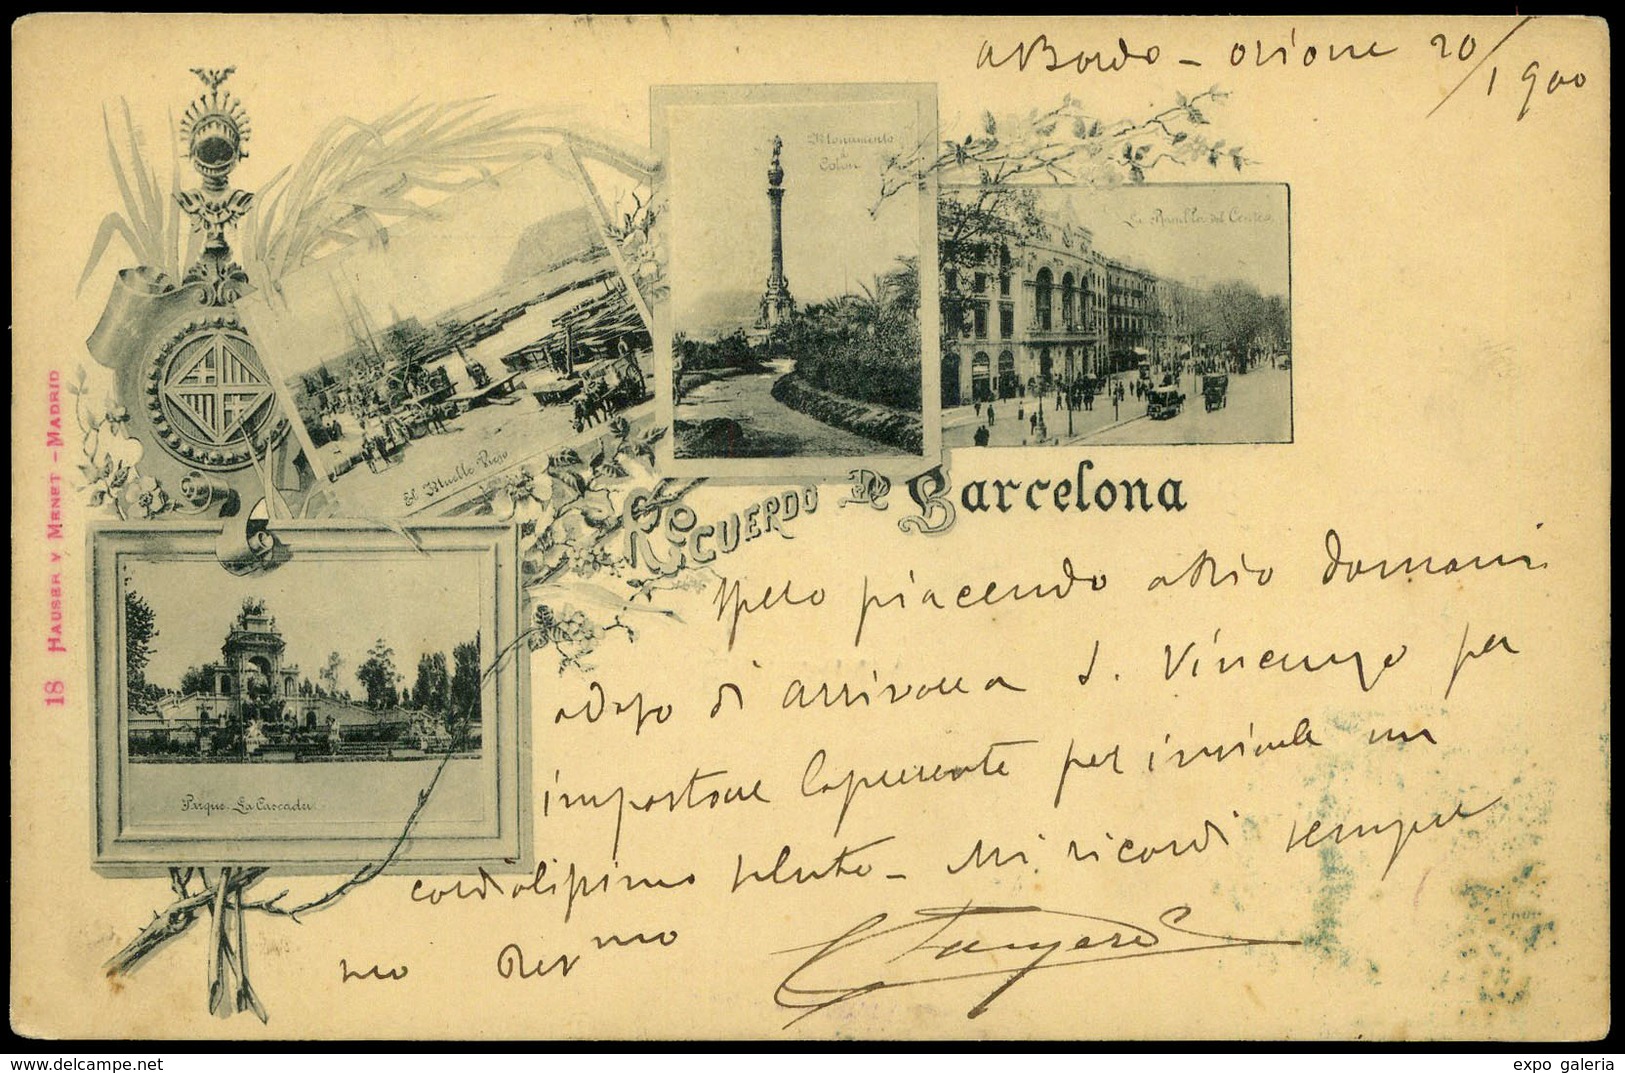 a Bordo - orione 20/1 900
Monumento
á
Colón
La Rambla del Centro.
El Muelle Viejo
Recuerdo de Barcelona
18 HAUSER Y MENET - MADRID
Parque. La Cascada
Spero piacendo a Dio domani
adesso di arrivare a S. Vincenzo per
impostare la presente per inviarle un
cordialissimo saluto - Mi ricordi sempre
suo Dev mo
expo galeria